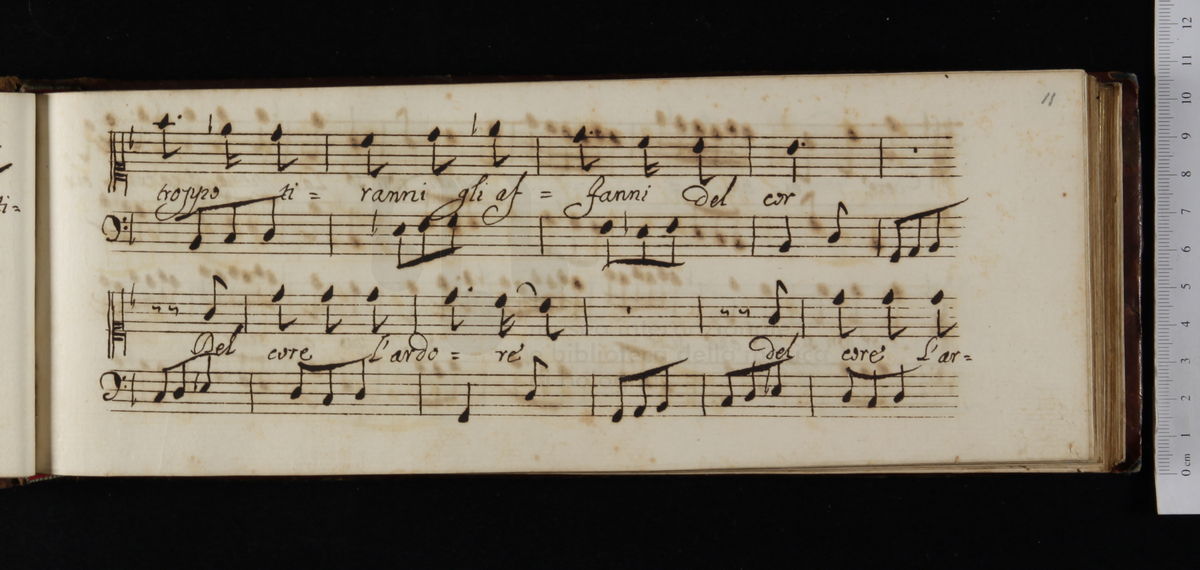 11
troppo ti = ranni gli af = fanni del cor
Del core l'ardo = re del core l'ar=
ti=
biblioteca della musica
0 cm 1 2 3 4 5 6 7 8 9 10 11 12